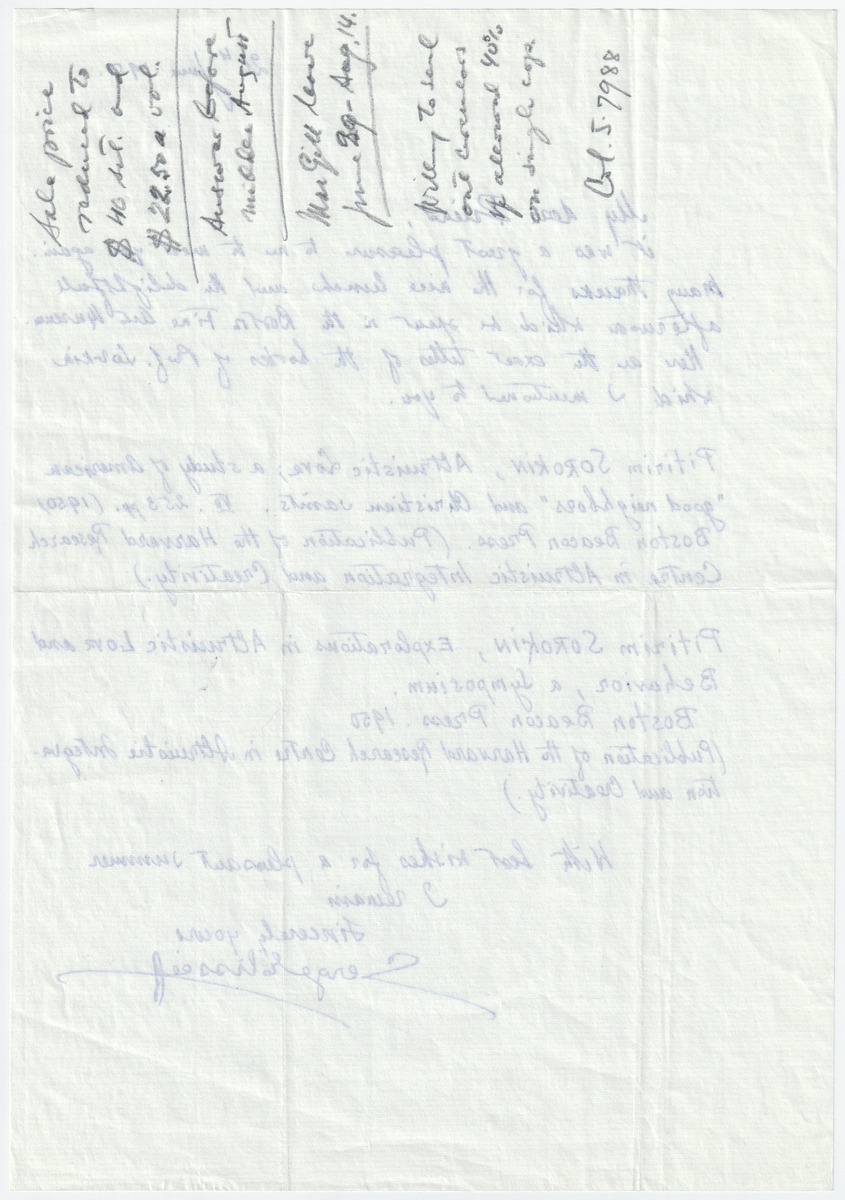 Sale price
reduced to
$ 40 set. and
$ 22.50 a vol.
Answer before
middle August
Miss Gill leave
June 29 - Aug. 14.
willing to send
out circulars
if allowed 40%
on single copy
Col. 5-7988
My dear
it was a great pleasure to me to meet you again.
Many thanks for the nice lunch and the delightful
afternoon which we spent in the Boston Fine Art Museum.
Here are the exact titles of the books of Prof. Sorokin
which I mentioned to you.
Pitirim SOROKIN, Altruistic Love; a study of American
"good neighbors" and Christian saints. VI. 253 pp. (1950)
Boston Beacon Press. (Publication of the Harvard Research
Centre in Altruistic Integration and Creativity.)
Pitirim SOROKIN, Explorations in Altruistic Love and
Behavior, a Symposium.
Boston Beacon Press. 1950
(Publication of the Harvard Research Centre in Altruistic Integra-
tion and Creativity.)
With best wishes for a pleasant summer
I remain
Sincerely yours
Serge Elisséeff